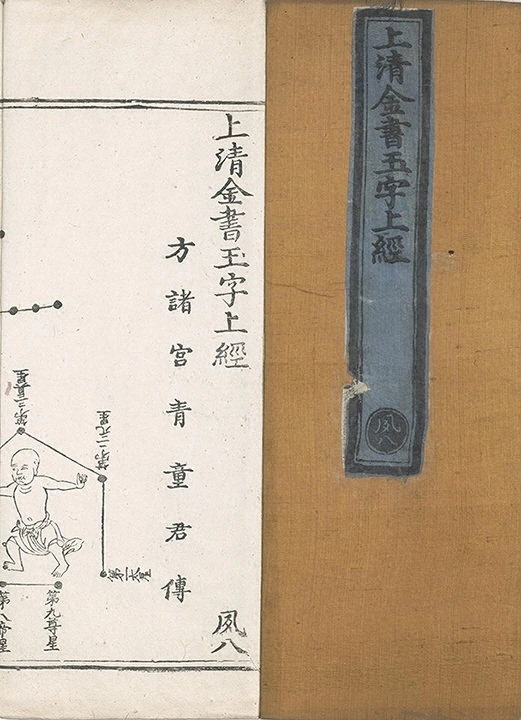 上清金書玉字上經
夙八
上清金書玉字上經
夙八
方諸宮青童君傳
第一太星
第二元星
第三真星
第九尊星
第八帝星